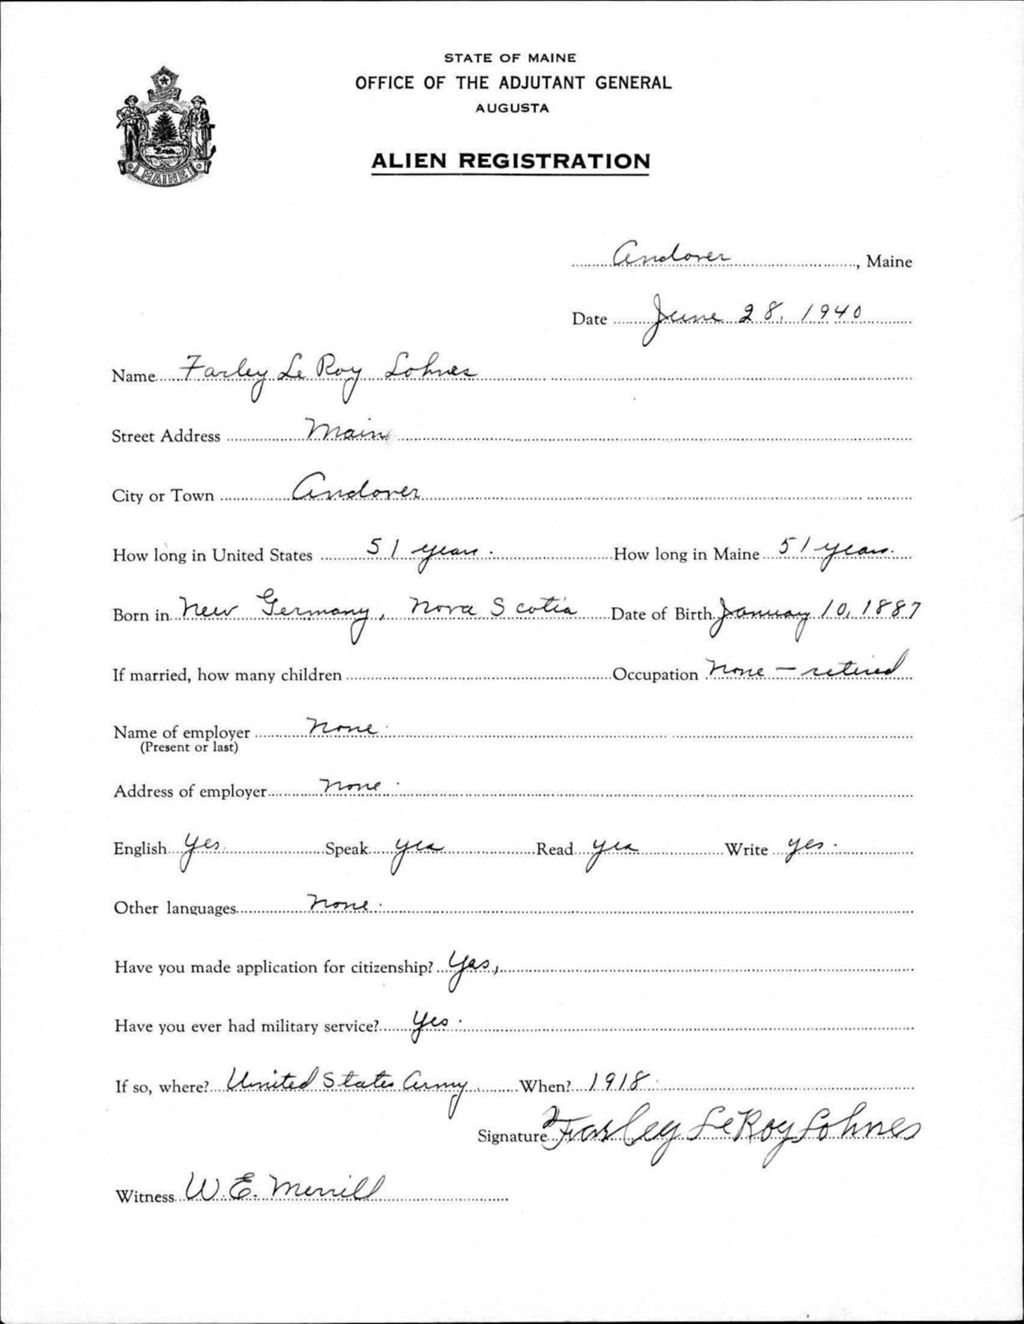 STATE OF MAINE
OFFICE OF THE ADJUTANT GENERAL
AUGUSTA
ALIEN REGISTRATION
MAINE
Andover, Maine
Date June 28, 1940
Name Farley Le Roy Lohnes
Street Address Main
City or Town Andover
How long in United States 51 years. How long in Maine 51 years.
Born in New Germany, Nova Scotia Date of Birth January 10, 1887
If married, how many children Occupation None — retired
Name of employer None.
(Present or last)
Address of employer None.
English Yes. Speak yes Read yes Write yes.
Other languages None.
Have you made application for citizenship? Yes,
Have you ever had military service? Yes.
If so, where? United States Army When? 1918
Signature Farley LeRoy Lohnes
Witness W. E. Merrill